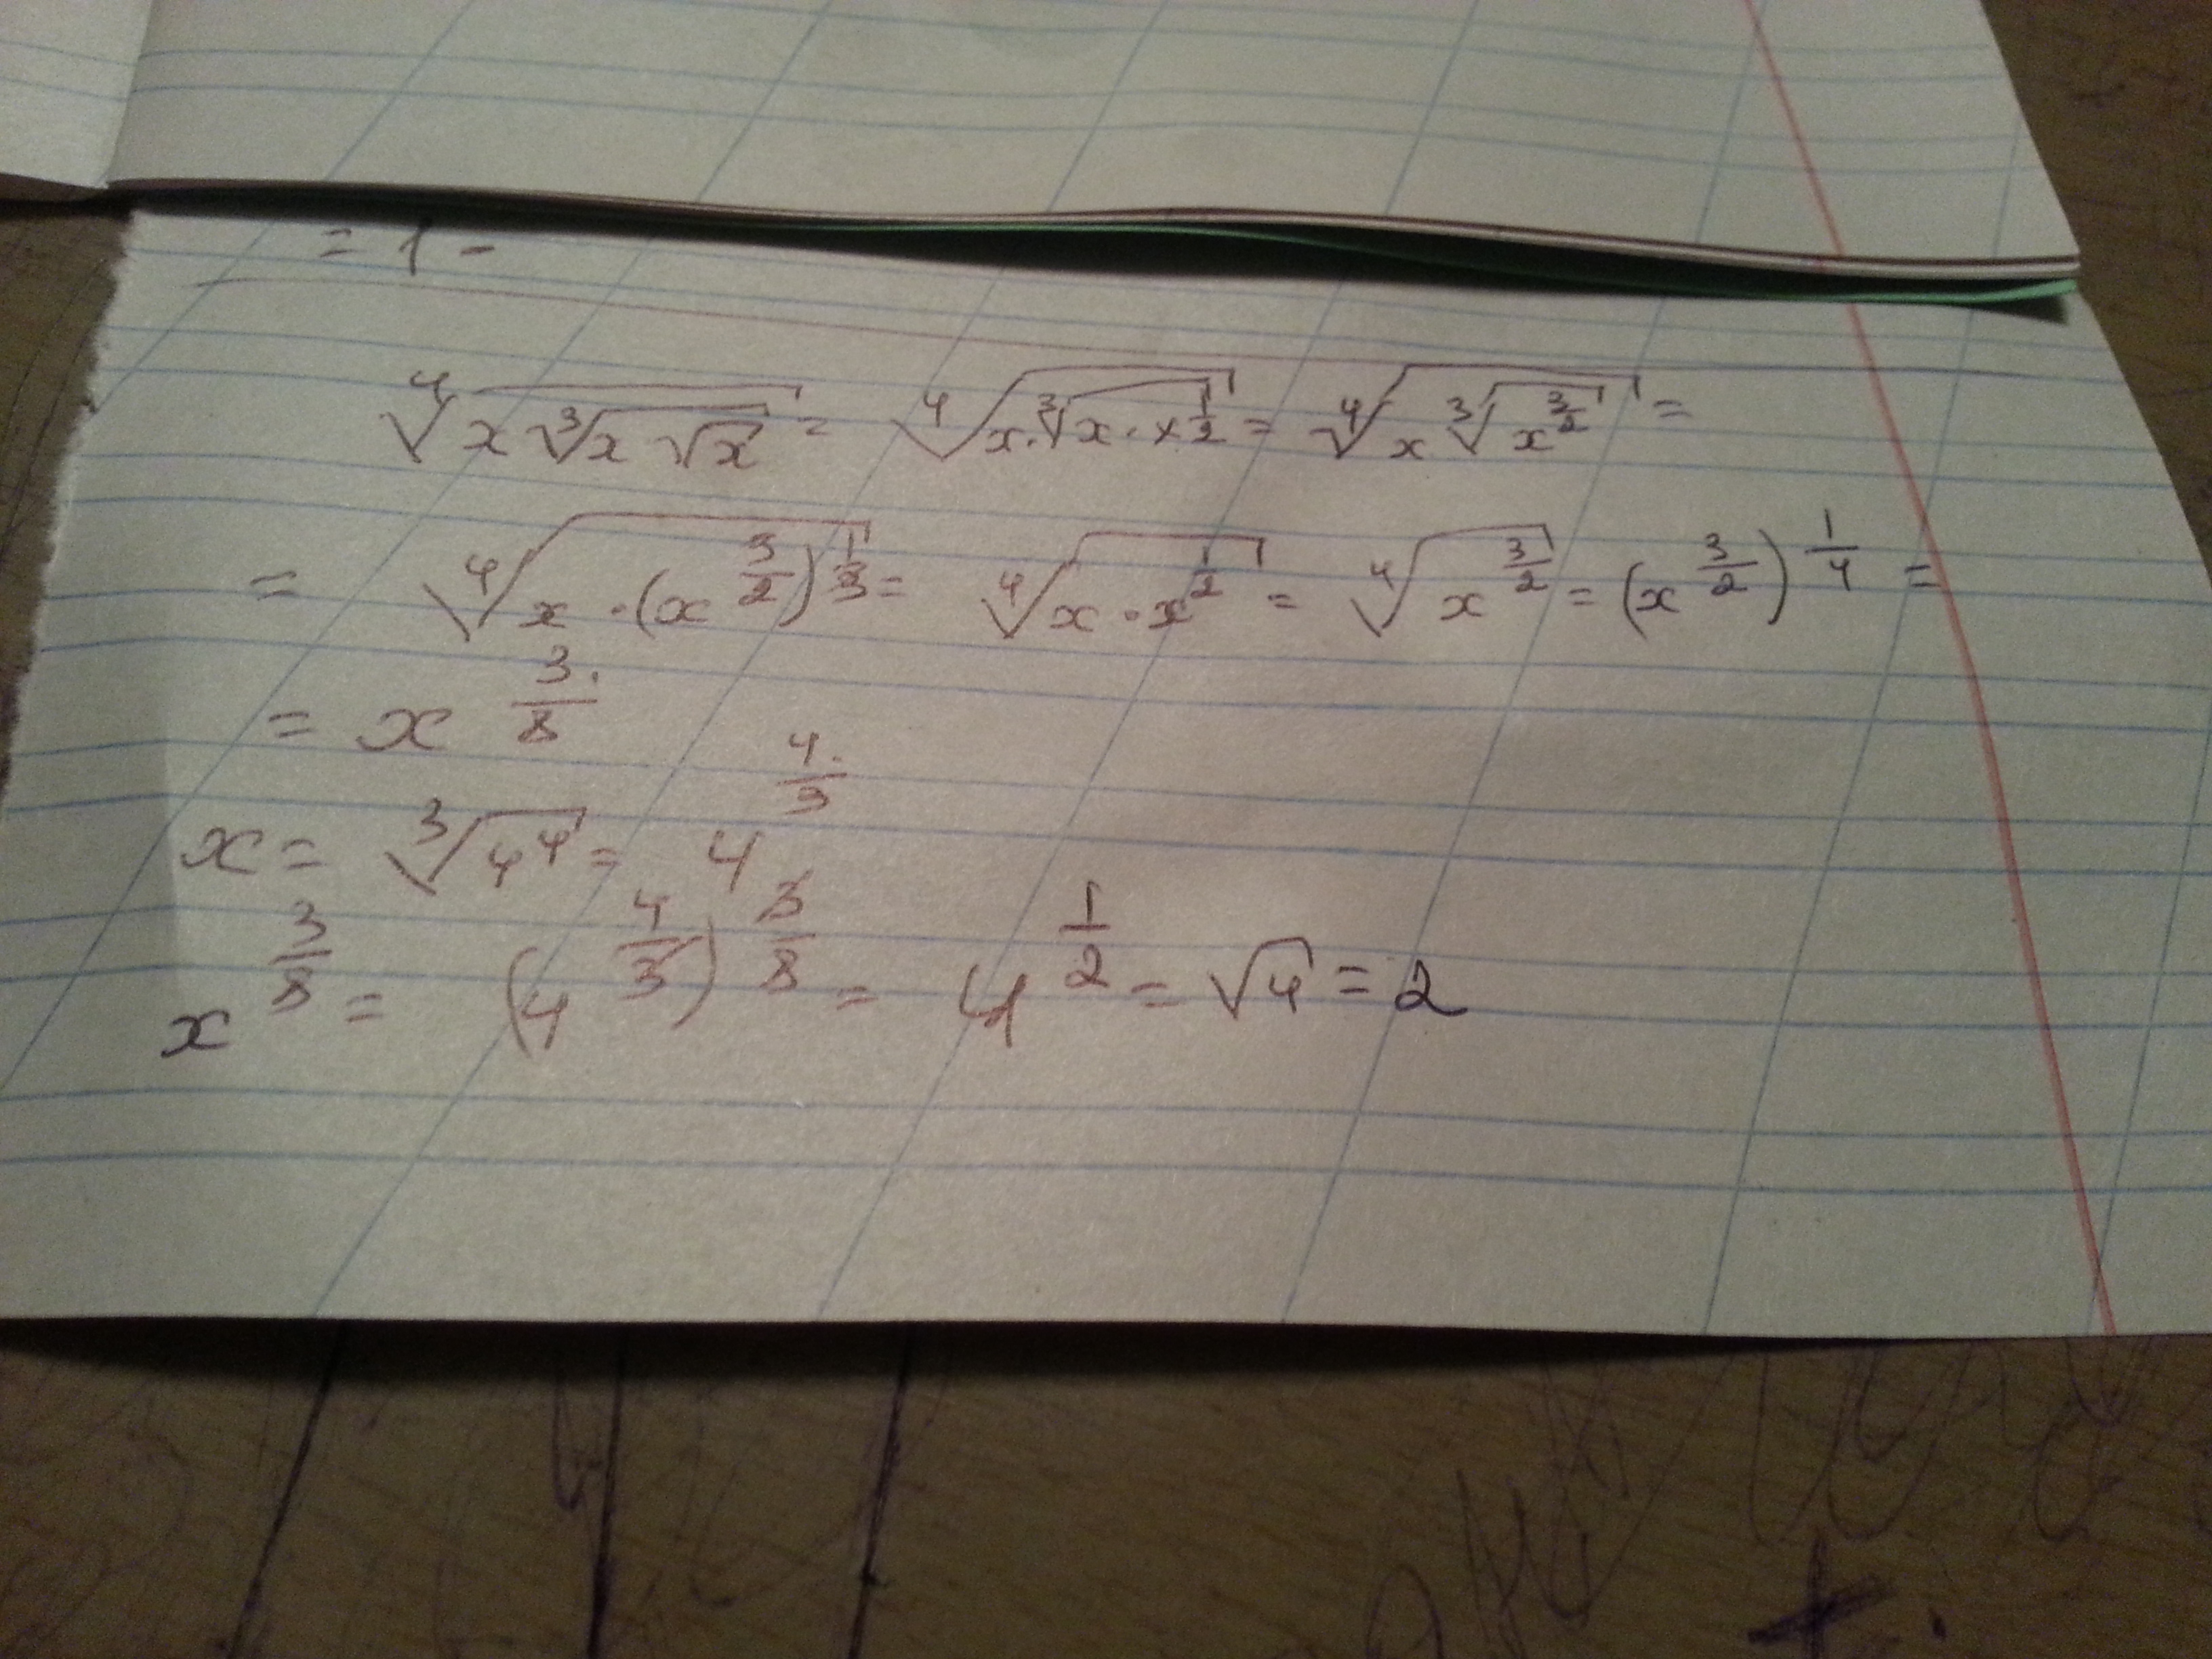 = 1 -
⁴√(x ³√(x √x)) = ⁴√(x · ³√(x · x^(1/2))) = ⁴√(x ³√(x^(3/2))) =
= ⁴√(x · (x^(3/2))^(1/3)) = ⁴√(x · x^(1/2)) = ⁴√(x^(3/2)) = (x^(3/2))^(1/4) =
= x^(3/8)
x = ³√(4⁴) = 4^(4/3)
x^(3/8) = (4^(4/3))^(3/8) = 4^(1/2) = √4 = 2